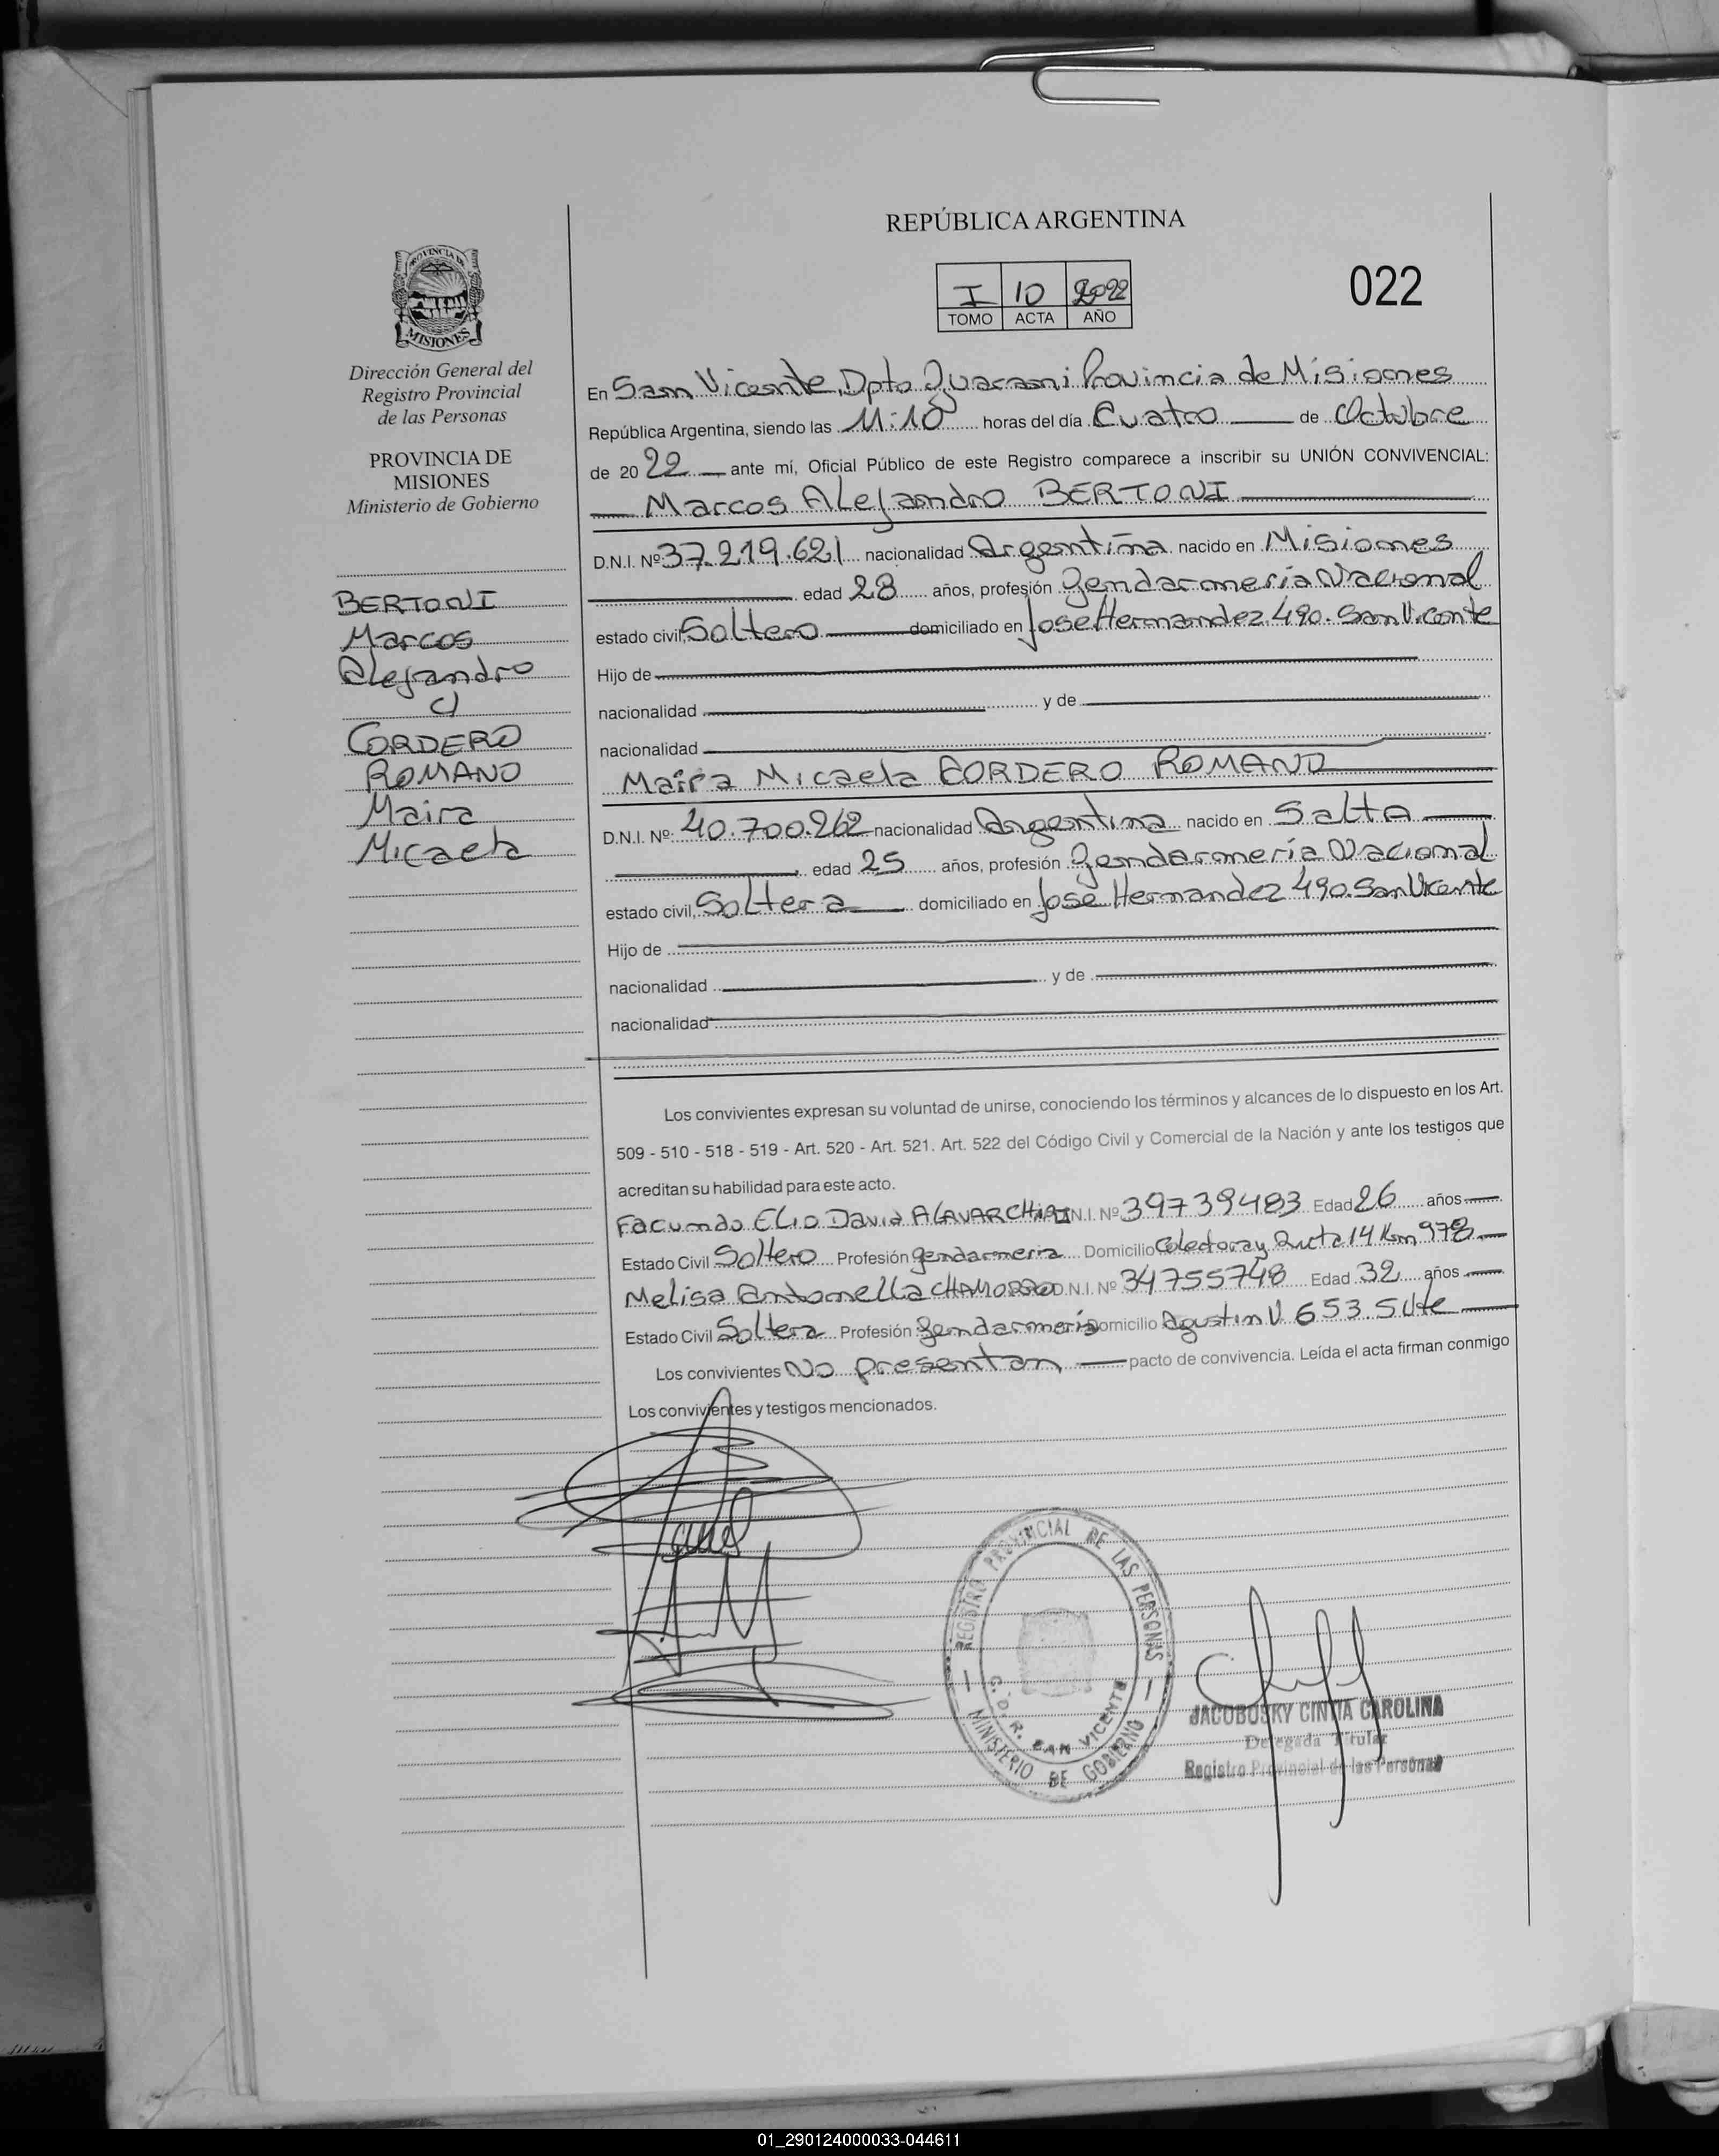 REPÚBLICA ARGENTINA
022
I 10 2022
TOMO ACTA AÑO
PROVINCIA DE
MISIONES
Dirección General del
Registro Provincial
de las Personas
PROVINCIA DE
MISIONES
Ministerio de Gobierno
BERTONI
Marcos
Alejandro
c/
CORDERO
ROMANO
Maira
Micaela
En San Vicente, Dpto Guarani Provincia de Misiones
República Argentina, siendo las 11:10 horas del día Cuatro de Octubre
de 2022 ante mí, Oficial Público de este Registro comparece a inscribir su UNIÓN CONVIVENCIAL:
Marcos Alejandro BERTONI
D.N.I. Nº 37.219.621 nacionalidad Argentina nacido en Misiones
edad 28 años, profesión Gendarmeria Nacional
estado civil Soltero domiciliado en Jose Hernandez 490. San Vicente
Hijo de
nacionalidad y de
nacionalidad
Maira Micaela CORDERO ROMANO
D.N.I. Nº 40.700.262 nacionalidad Argentina nacido en Salta
edad 25 años, profesión Gendarmería Nacional
estado civil, Soltera domiciliado en José Hernandez 490. San Vicente
Hijo de
nacionalidad y de
nacionalidad
Los convivientes expresan su voluntad de unirse, conociendo los términos y alcances de lo dispuesto en los Art.
509 - 510 - 518 - 519 - Art. 520 - Art. 521. Art. 522 del Código Civil y Comercial de la Nación y ante los testigos que
acreditan su habilidad para este acto.
Facundo Elio David D.N.I. Nº 39739483 Edad 26 años
Estado Civil Soltero Profesión gendarmeria Domicilio Colectora y Ruta 14 Km 978
Melisa Antonella CHAMORRO D.N.I. Nº 34755748 Edad 32 años
Estado Civil Soltera Profesión Gendarmería Domicilio Agustin V 653. S.Vte
Los convivientes No presentan pacto de convivencia. Leída el acta firman conmigo
Los convivientes y testigos mencionados.
REGISTRO PROVINCIAL DE LAS PERSONAS
C. D. R. SAN VICENTE
MINISTERIO DE GOBIERNO
JACOBOSKY CINTIA CAROLINA
Delegada Titular
Registro Provincial de las Personas
01_290124000033-044611